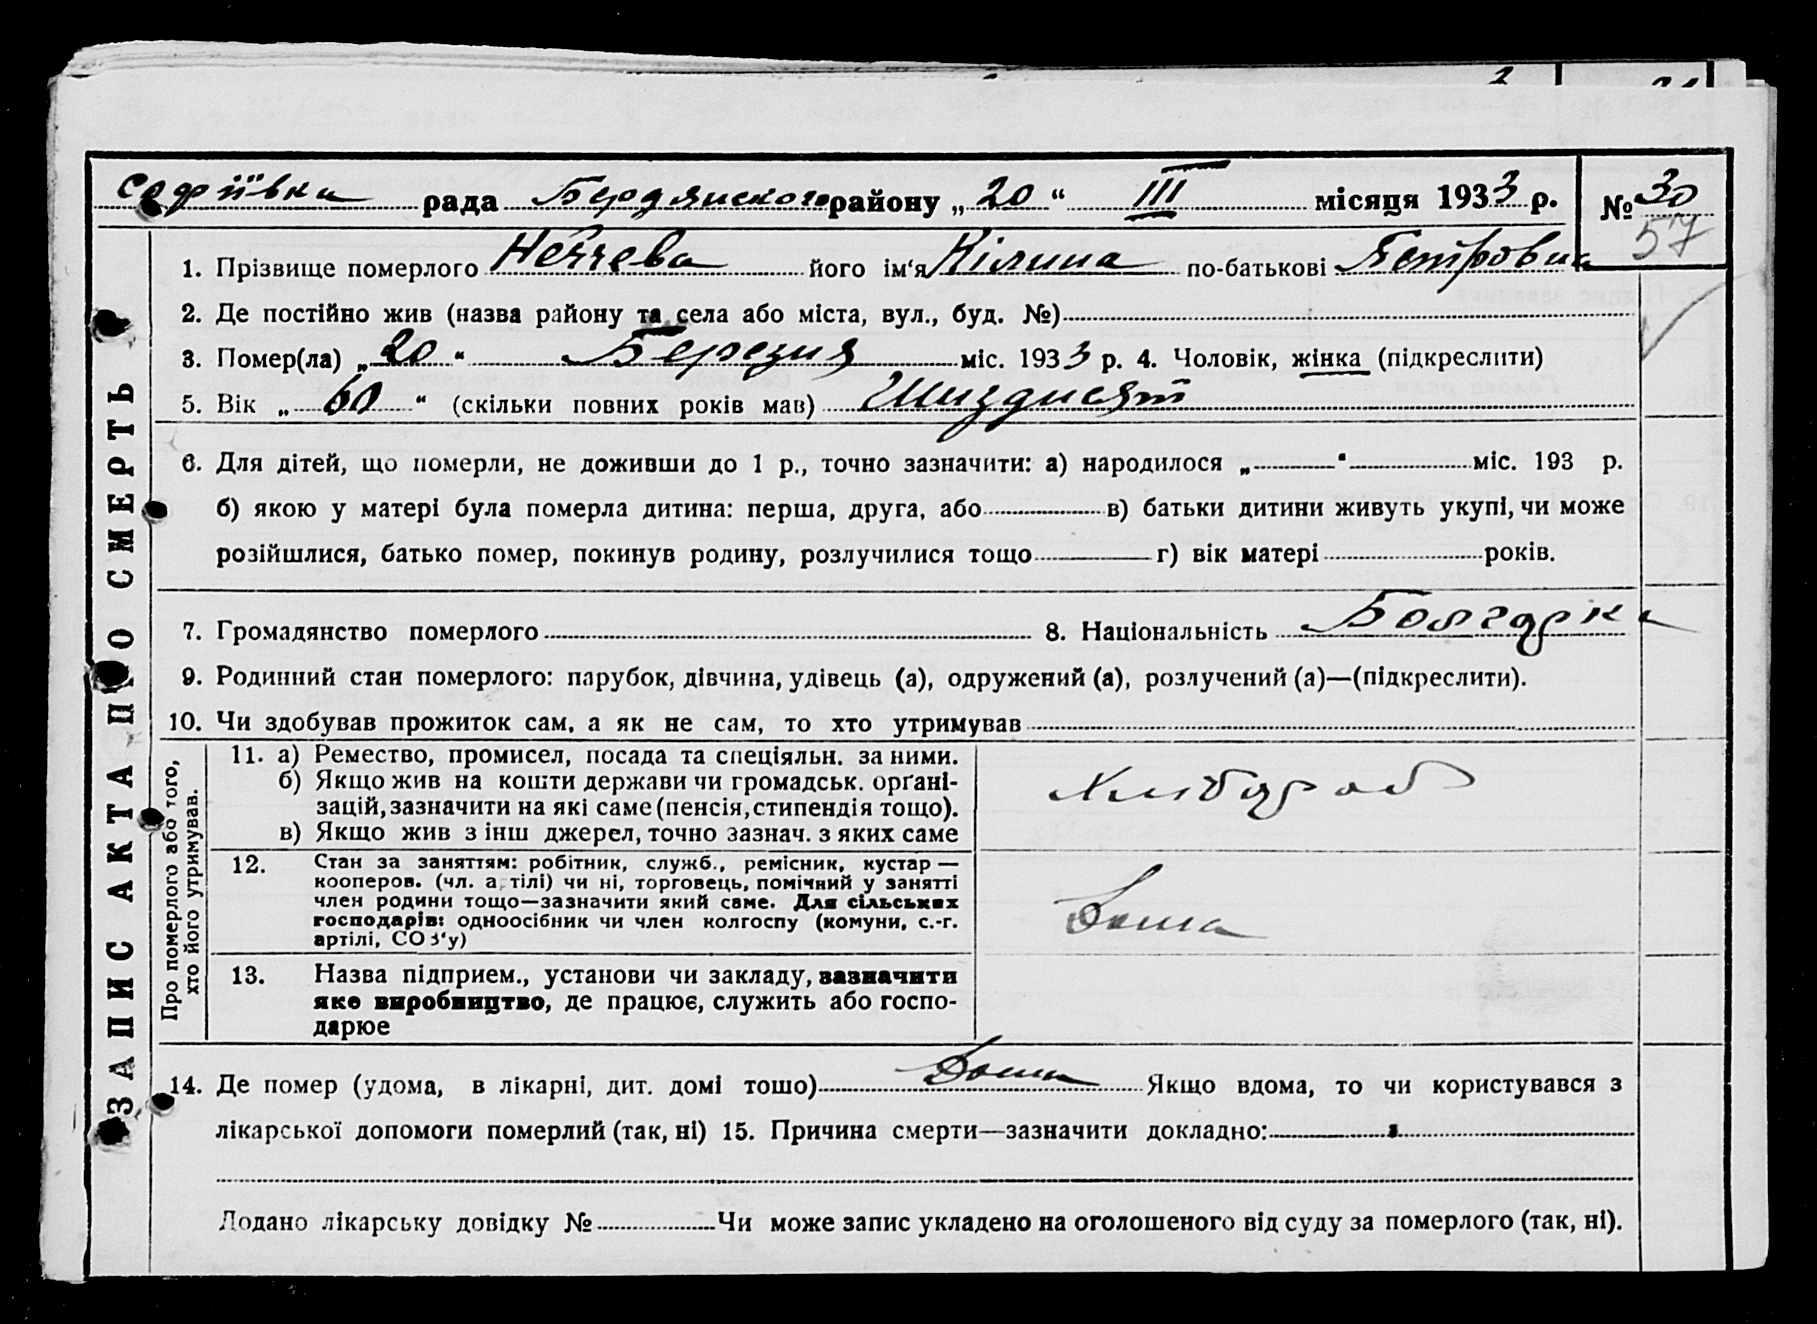 Софіївка рада Бердянського району „20“ III місяця 1933 р. № 30
57
1. Прізвище померлого його ім‘я Кілина по-батькові Петровна
2. Де постійно жив (назва району та села або міста, вул., буд. №)
3. Помер(ла) „20“ Березня міс. 1933 р. 4. Чоловік, жінка (підкреслити)
5. Вік „60“ (скільки повних років мав) Шиздисят
6. Для дітей, що померли, не доживши до 1 р., точно зазначити: а) народилося „ “ міс. 193 р.
б) якою у матері була померла дитина: перша, друга, або в) батьки дитини живуть укупі, чи може
розійшлися, батько помер, покинув родину, розлучилися тощо г) вік матері років.
7. Громадянство померлого 8. Національність Болгарка
9. Родинний стан померлого: парубок, дівчина, удівець (а), одружений (а), розлучений (а)—(підкреслити).
10. Чи здобував прожиток сам, а як не сам, то хто утримував
ЗАПИС АКТА ПРО СМЕРТЬ
Про померлого або того,
хто його утримував.
11. а) Ремество, промисел, посада та спеціяльн. за ними.
б) Якщо жив на кошти держави чи громадськ. орґані-
зацій, зазначити на які саме (пенсія, стипендія тощо).
в) Якщо жив з інш джерел, точно зазнач. з яких саме
Хлибороб
12. Стан за заняттям: робітник, служб., ремісник, кустар —
кооперов. (чл. артілі) чи ні, торговець, помічний у занятті
член родини тощо—зазначити який саме. Для сільських
господарів: одноосібник чи член колгоспу (комуни, с.-г.
артілі, СОЗ‘у)
Дома
13. Назва підприєм., установи чи закладу, зазначити
яке виробництво, де працює, служить або госпо-
дарює
14. Де помер (удома, в лікарні, дит. домі тошо) Дома Якщо вдома, то чи користувався з
лікарської допомоги померлий (так, ні) 15. Причина смерти—зазначити докладно:
Додано лікарську довідку № Чи може запис укладено на оголошеного від суду за померлого (так, ні).